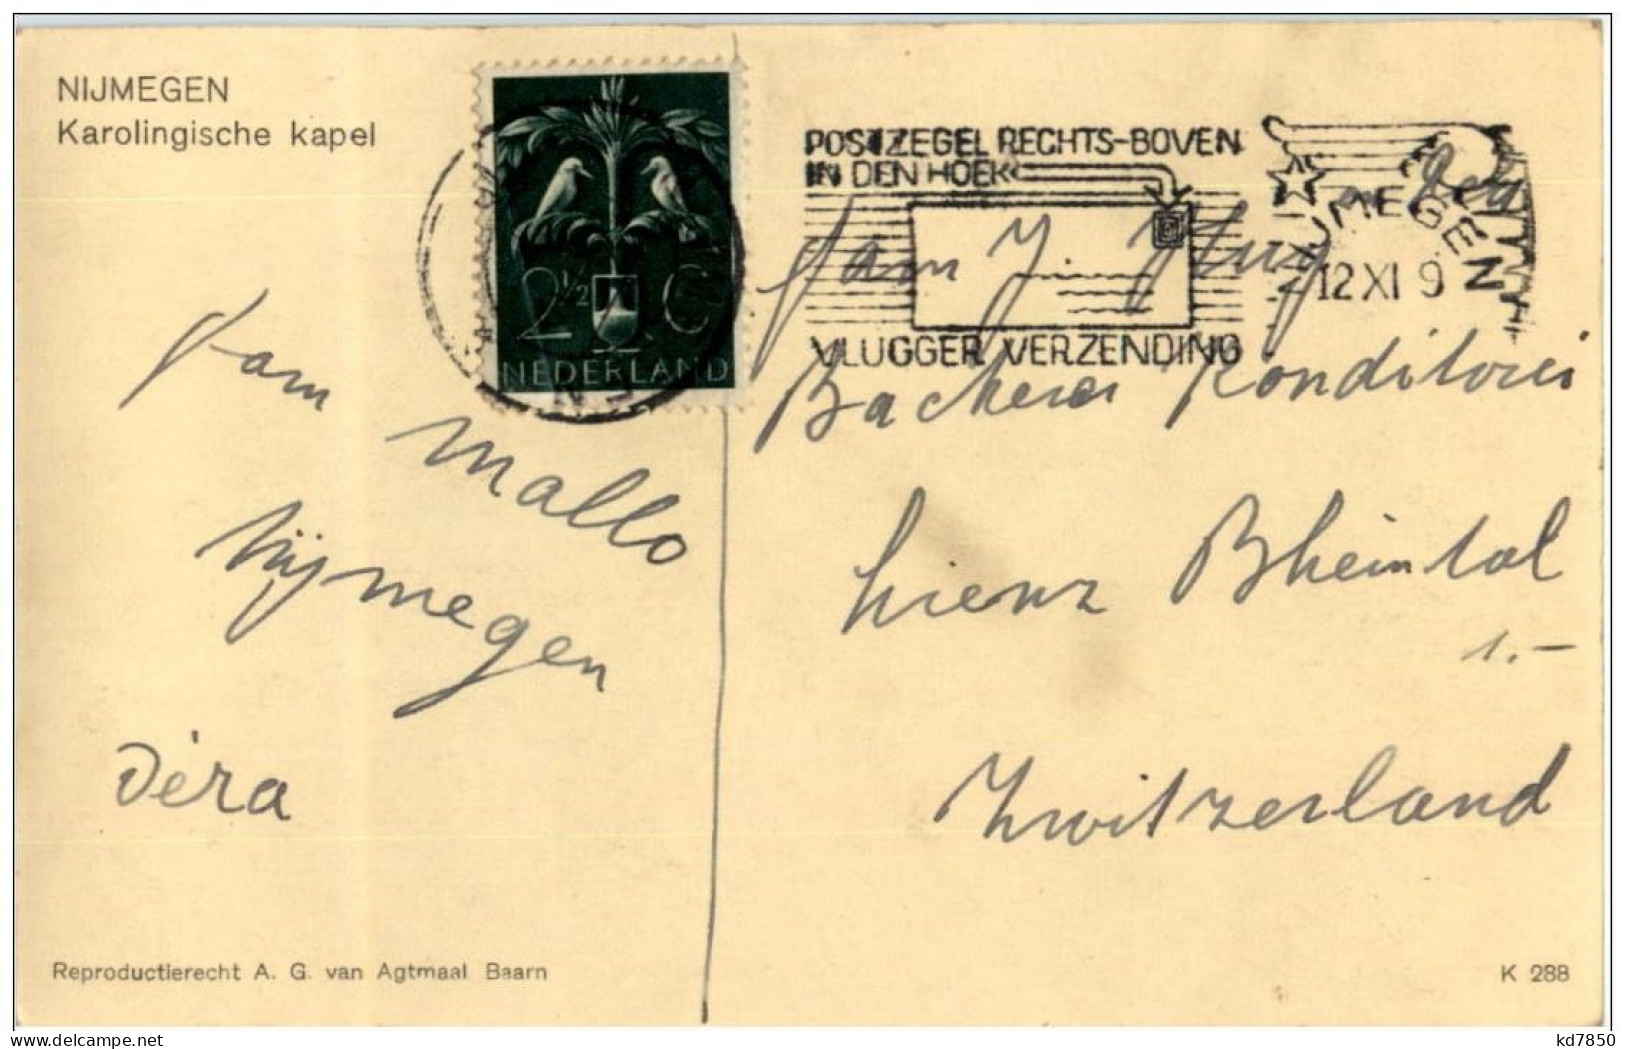 NIJMEGEN
Karolingische kapel
2½ C
NEDERLAND
POSTZEGEL RECHTS-BOVEN
IN DEN HOEK
VLUGGER VERZENDING
NIJMEGEN
12 XI 9
fam
Mallo
Nijmegen
Vera
fam J.
Backerei Konditorei
Lienz Rheintal
1.-
Zwitzerland
Reproductierecht A. G. van Agtmaal Baarn
K 288
kd7850